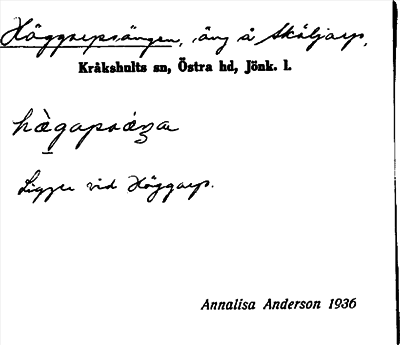 Höggarpsängen, äng å Skäljarp,
Kråkshults sn, Östra hd, Jönk. l.
Ligger vid Höggarp.
Annalisa Anderson 1936